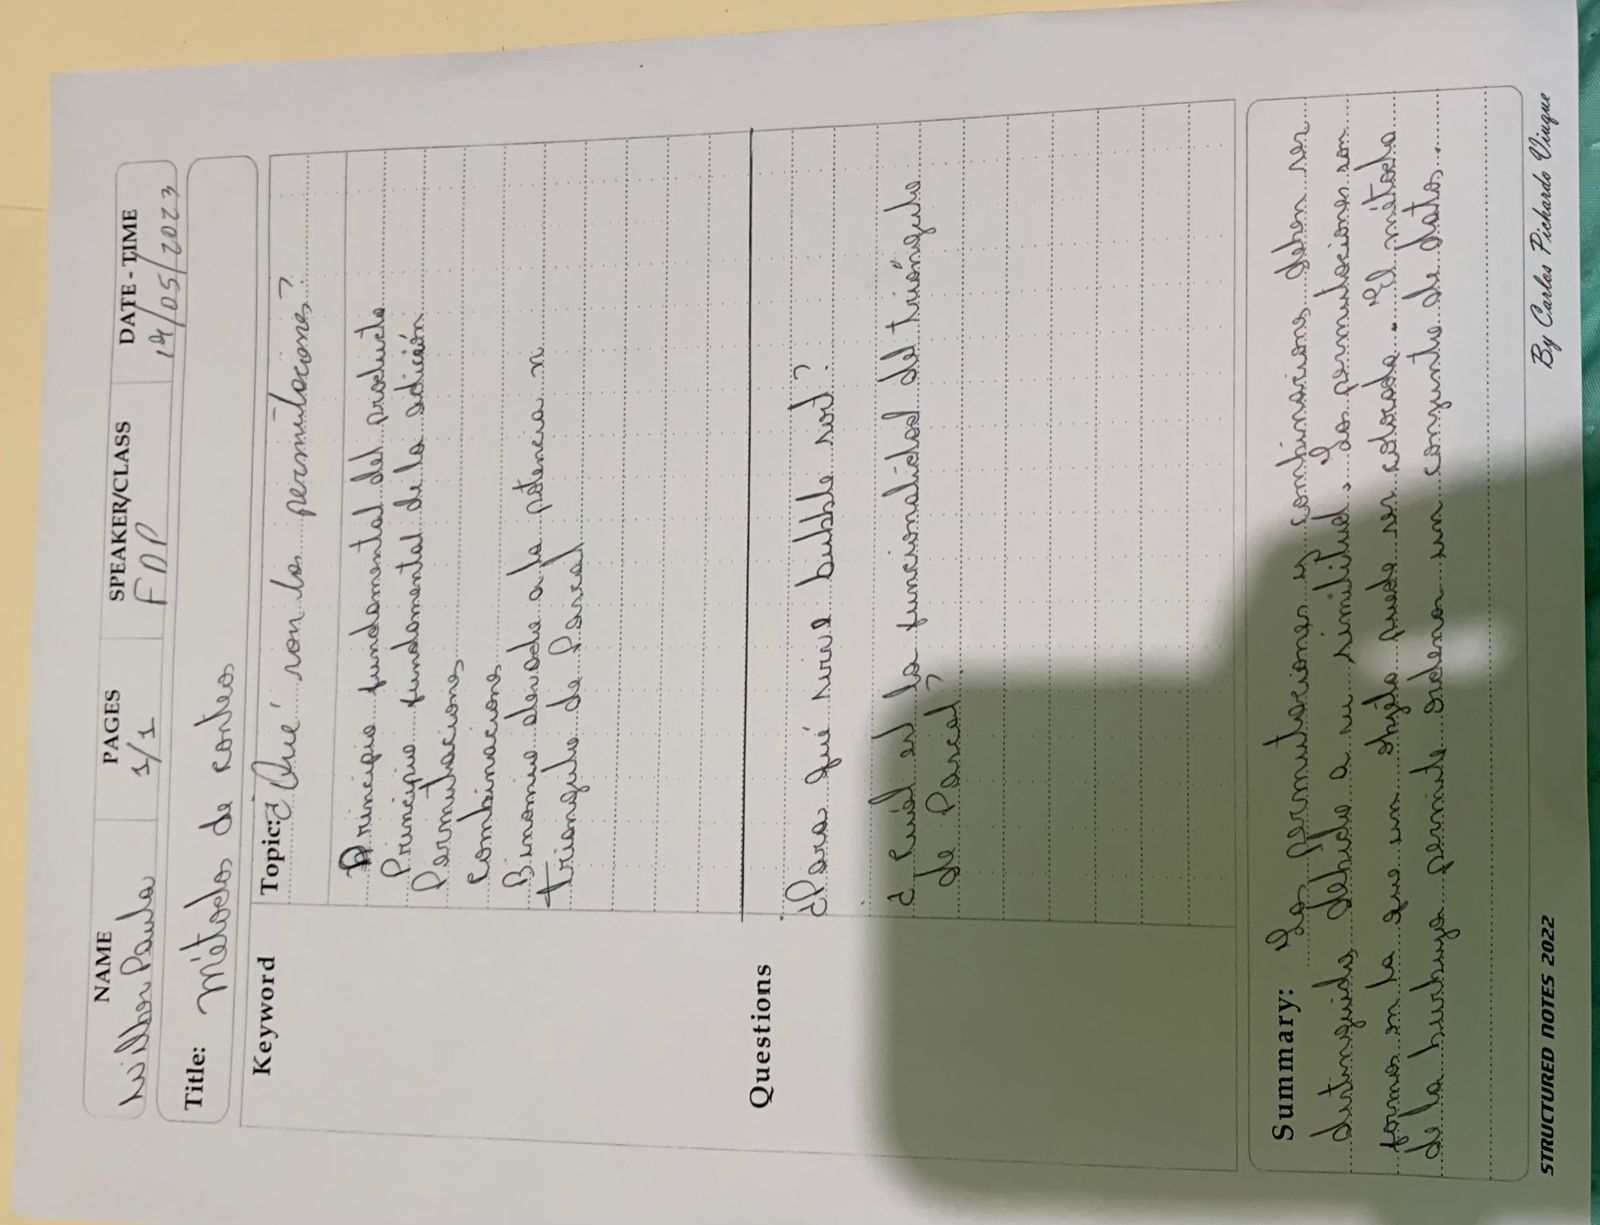 NAME PAGES SPEAKER/CLASS DATE - TIME
Wilber Paula 1/1 FDP 14/05/2023
Title: Métodos de conteo
Keyword
Topic: ¿Qué son las permutaciones?
Principio fundamental del producto
Principio fundamental de la adición
Permutaciones
Combinaciones
Binomio elevado a la potencia n
triangulo de Pascal
Questions
¿Para qué sirve bubble sort?
¿Cuál es la funcionalidad del triángulo
de Pascal?
Summary: Las permutaciones y combinaciones deben ser
distinguidas debido a su similitud. Las permutaciones son
formas en la que un objeto puede ser colorado. El método
de la burbuja permite ordenar un conjunto de datos.
STRUCTURED NOTES 2022 By Carlos Pichardo Viuque